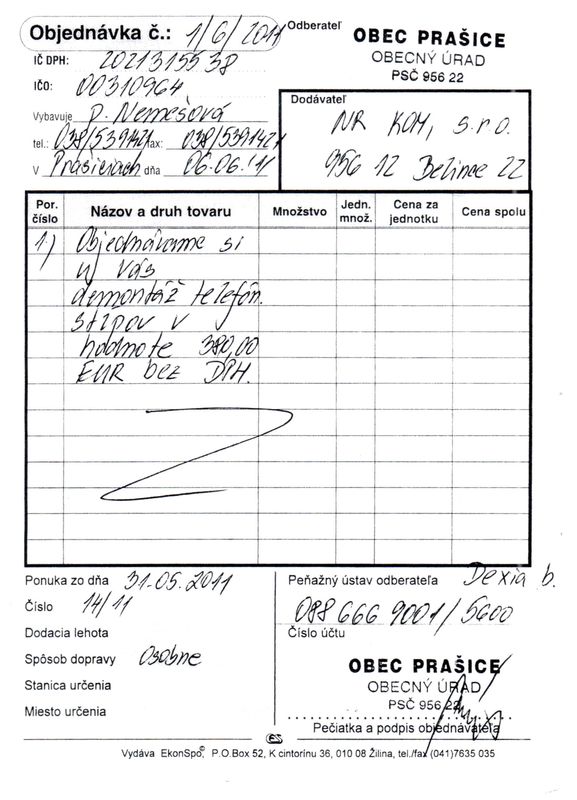 Objednávka č.: 1/6/2011
Odberateľ
OBEC PRAŠICE
OBECNÝ ÚRAD
PSČ 956 22
IČ DPH: 2021315538
IČO: 00310964
Vybavuje p. Nemešová
tel.: 038/5391421 fax: 038/5391421
V Prašiciach dňa 06.06.'11
Dodávateľ
NR KOM, s.r.o.
956 12 Belince 22
Por. číslo Názov a druh tovaru Množstvo Jedn. množ. Cena za jednotku Cena spolu
1.) Objednávame si
u Vás
demontáž telefón.
stĺpov v
hodnote 380,00
EUR bez DPH.
Ponuka zo dňa 31.05.2011
Číslo 14/11
Dodacia lehota
Spôsob dopravy Osobne
Stanica určenia
Miesto určenia
Peňažný ústav odberateľa Dexia b.
088 666 9001/5600
Číslo účtu
OBEC PRAŠICE
OBECNÝ ÚRAD
PSČ 956 22
Pečiatka a podpis objednávateľa
GS
Vydáva EkonSpo, P.O.Box 52, K cintorínu 36, 010 08 Žilina, tel./fax (041)7635 035